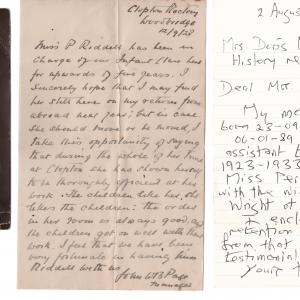 Clopton Rectory
Woodbridge
12/9/28
Miss P Riddell has been in
Charge of our Infant Class here
for upwards of five years. I
Sincerely hope that I may find
her still here on my return from
abroad next year; but in case
She should move or be moved, I
take this opportunity of saying
that during the whole of her time
at Clopton she has shown herself
to be thoroughly efficient at her
work. The children like her, she
likes the children: the order
in her room is always good, and
the children get on well with their
work. I feel that we have been
very fortunate in having Miss
Riddell with us.
John
Manager
2 Augus
Mrs Doris M
History re
Dear Mr.
My mo
born 23-09
06-01-89
assistant t
1923-1933
Miss Pei
with the w
Wright of
I encl
from that
testimonial
Yours